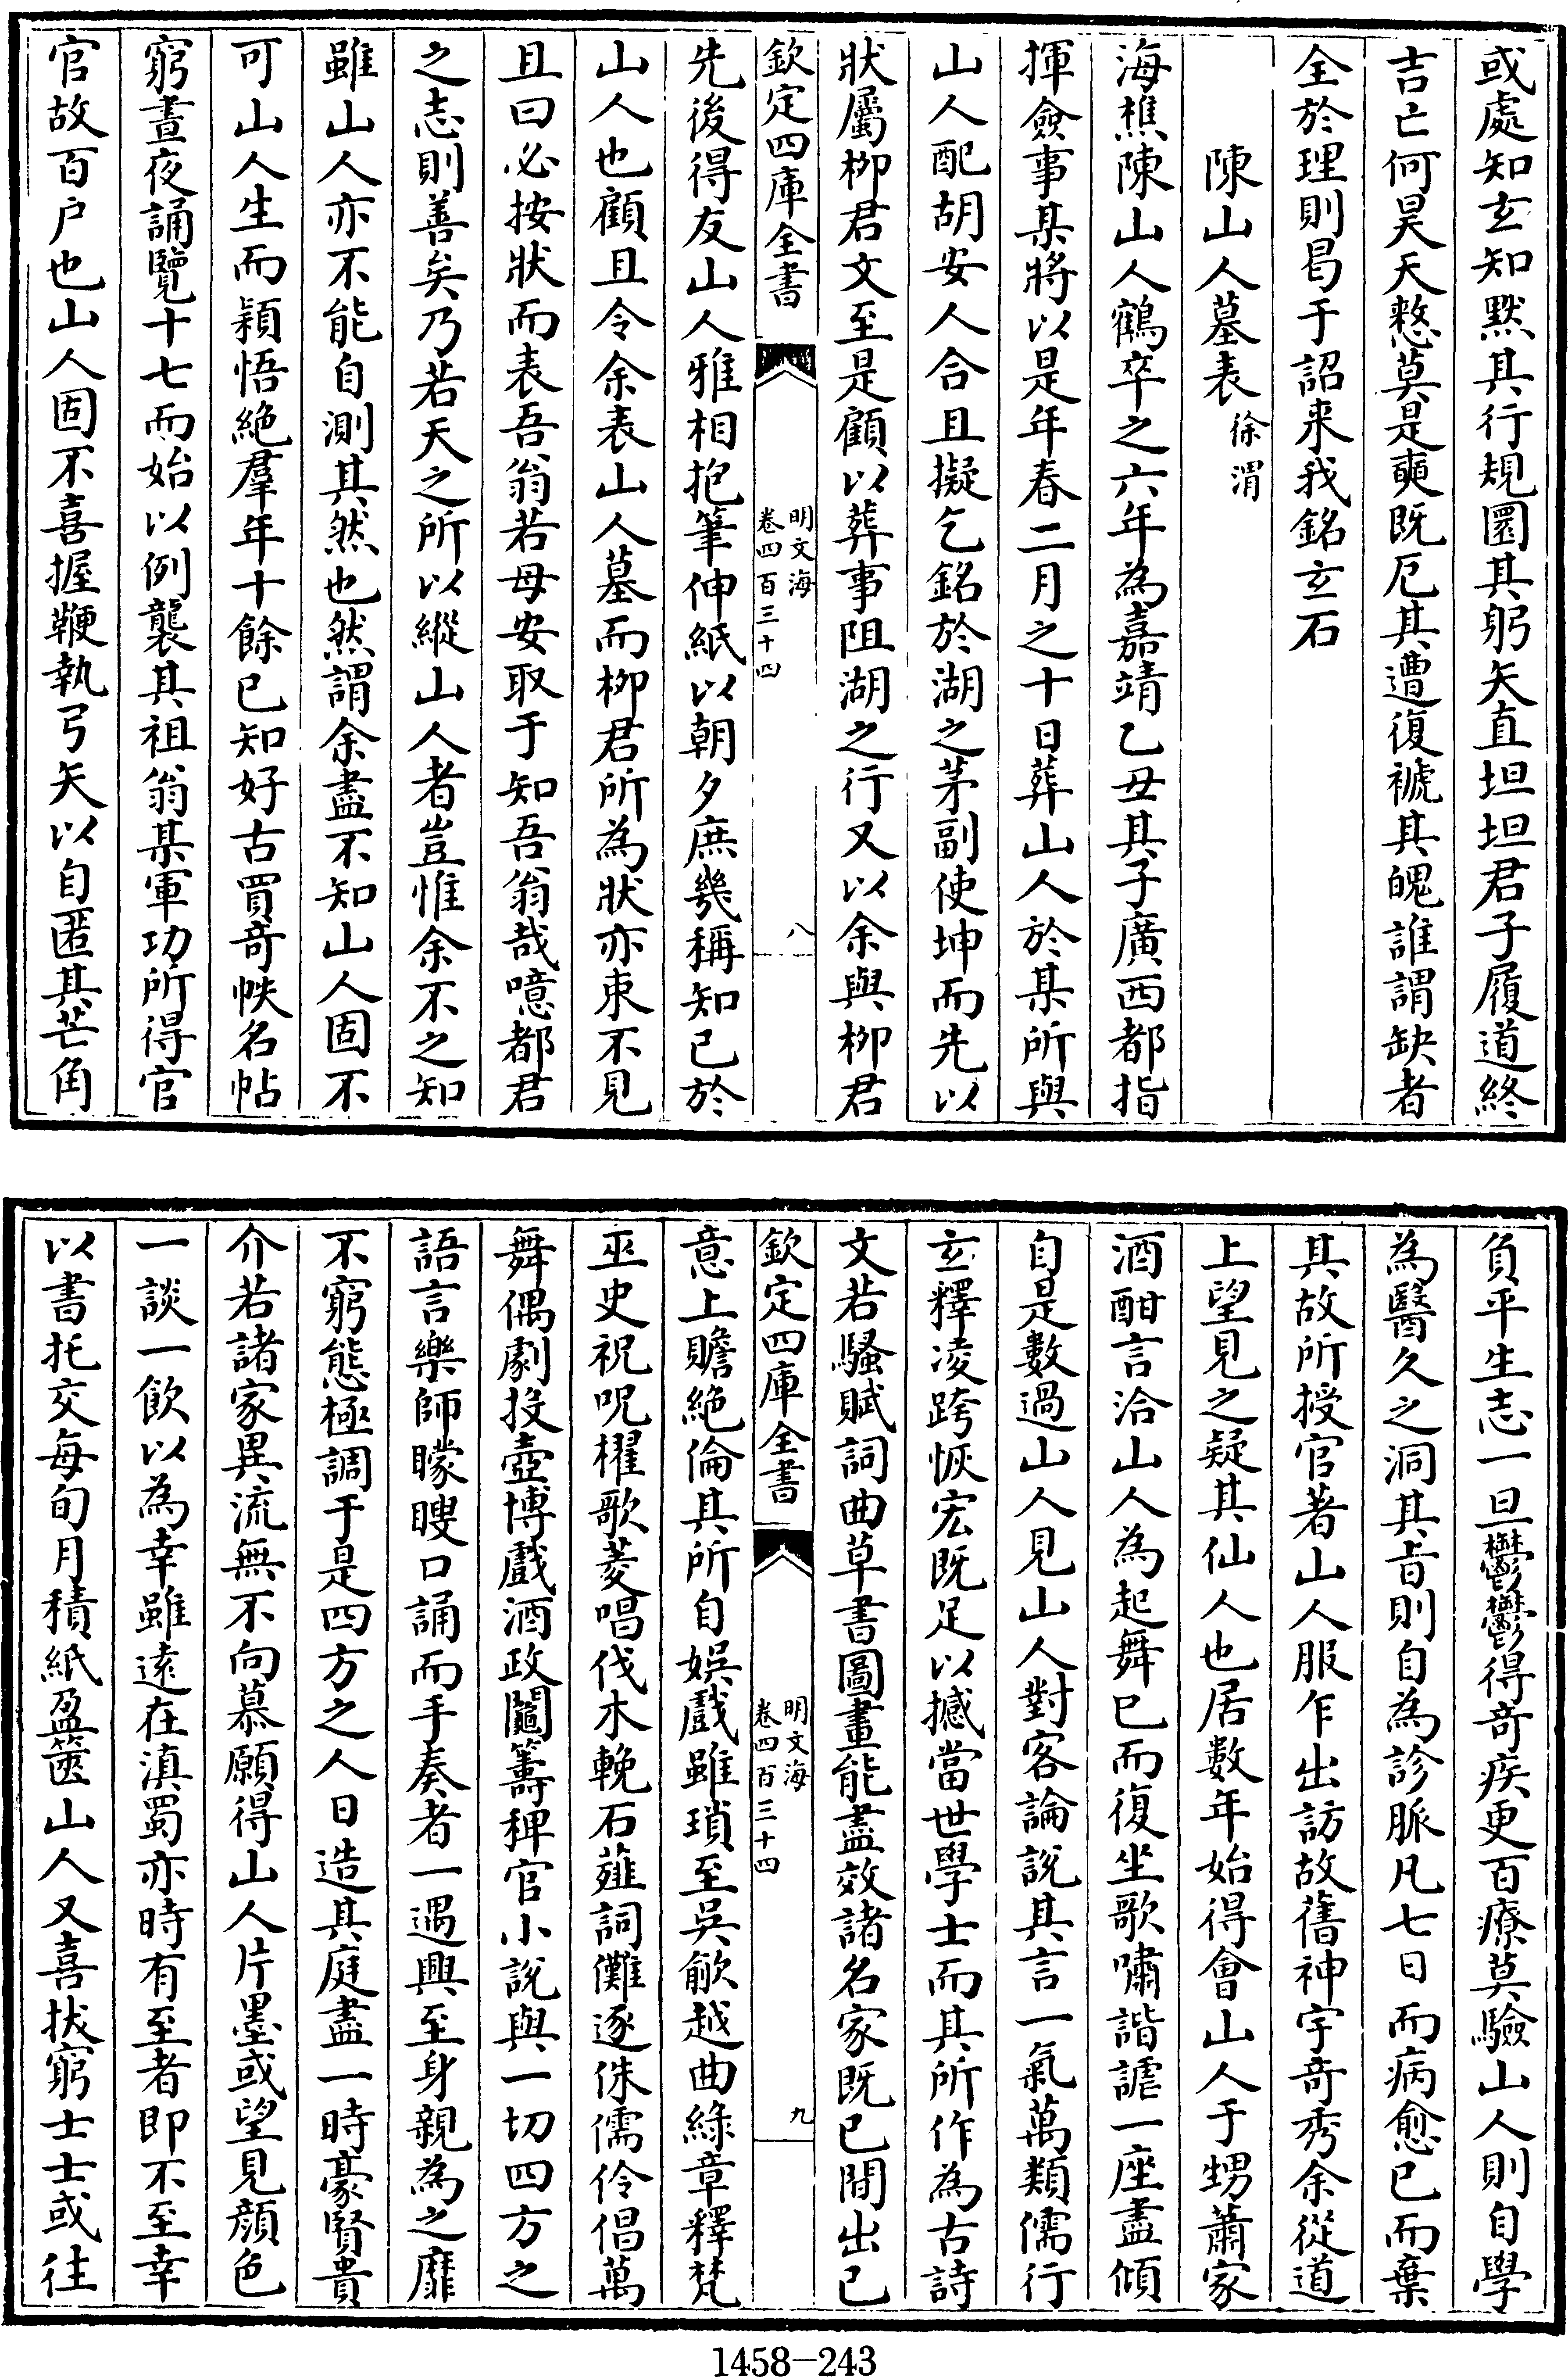 或處知玄知黙其行規圜其躬矢直坦坦君子履道終
吉亡何昊天憖莫是奭既厄其遭復褫其魄誰謂缺者
全於理則昌于詔来我銘玄石
陳山人墓表徐渭
海樵陳山人鶴卒之六年為嘉靖乙丑其子廣西都指
揮僉事某將以是年春二月之十日葬山人於某所與
山人配胡安人合且擬乞銘於湖之茅副使坤而先以
狀屬栁君文至是顧以葬事阻湖之行又以余與栁君
欽定四庫全書
明文海
卷四百三十四
八
先後得友山人雅相抱筆伸紙以朝夕庶幾稱知已於
山人也顧且令余表山人墓而栁君所為狀亦束不見
且曰必按狀而表吾翁若母安取于知吾翁哉噫都君
之志則善矣乃若天之所以縱山人者豈惟余不之知
雖山人亦不能自測其然也然謂余盡不知山人固不
可山人生而穎悟絶羣年十餘已知好古買奇帙名帖
窮晝夜誦覽十七而始以例襲其祖翁某軍功所得官
官故百户也山人固不喜握鞭執弓矢以自匿其芒角
負平生志一旦鬱鬱得奇疾更百療莫驗山人則自學
為醫久之洞其㫖則自為診脈凡七日而病愈已而棄
其故所授官著山人服乍出訪故舊神宇奇秀余從道
上望見之疑其仙人也居數年始得會山人于甥蕭家
酒酣言洽山人為起舞已而復坐歌嘯諧謔一座盡傾
自是數過山人見山人對客論說其言一氣萬類儒行
玄釋凌跨恢宏既足以撼當世學士而其所作為古詩
文若騷賦詞曲草書圖畫能盡效諸名家既已間出已
欽定四庫全書
明文海
卷四百三十四
九
意上贍絶倫其所自娛戲雖瑣至吳歈越曲緑章釋梵
巫史祝呪櫂歌菱唱伐木輓石薤詞儺逐侏儒伶倡萬
舞偶劇投壺博戲酒政鬮籌稗官小說與一切四方之
語言樂師矇瞍口誦而手奏者一遇興至身親為之靡
不窮態極調于是四方之人日造其庭盡一時豪賢貴
介若諸家異流無不向慕願得山人片墨或望見顔色
一談一飲以為幸雖遠在滇蜀亦時有至者即不至幸
以書托交每旬月積紙盈篋山人又喜拔窮士士或往
1458-243